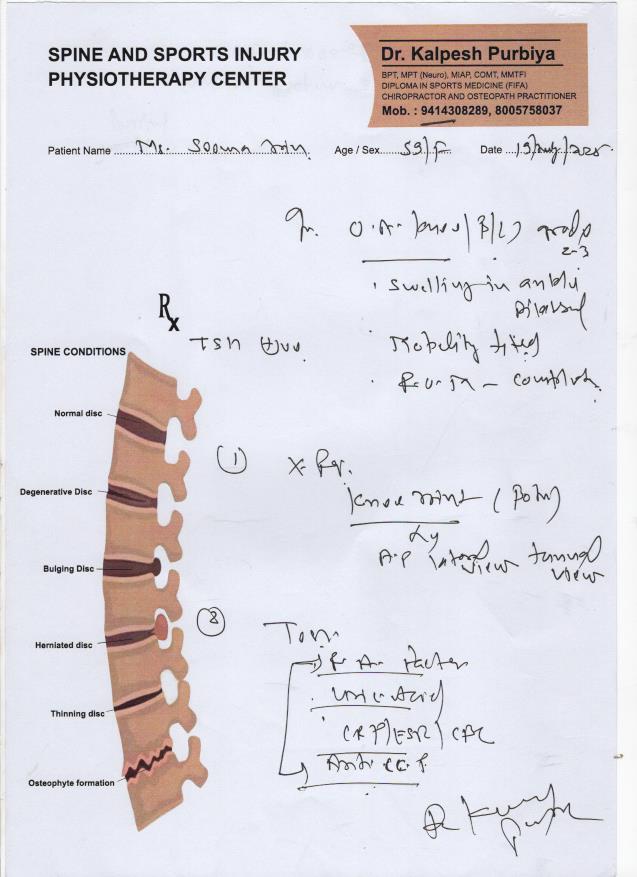 SPINE AND SPORTS INJURY
PHYSIOTHERAPY CENTER
Dr. Kalpesh Purbiya
BPT, MPT (Neuro), MIAP, COMT, MMTFI
DIPLOMA IN SPORTS MEDICINE (FIFA)
CHIROPRACTOR AND OSTEOPATH PRACTITIONER
Mob. : 9414308289, 8005758037
Patient Name Age / Sex 59/F Date 19/
O.A. knee (B/L) grade
2-3
Swelling in ankle
Rx
Mobility
SPINE CONDITIONS
R.O.M -
Normal disc
① X-Ray.
Degenerative Disc
Knee joint (Both)
A.P lateral view tunnel view
Bulging Disc
Herniated disc
R.A. factor
Uric Acid
Thinning disc
CRP/ESR/CBC
Anti CCP
Osteophyte formation